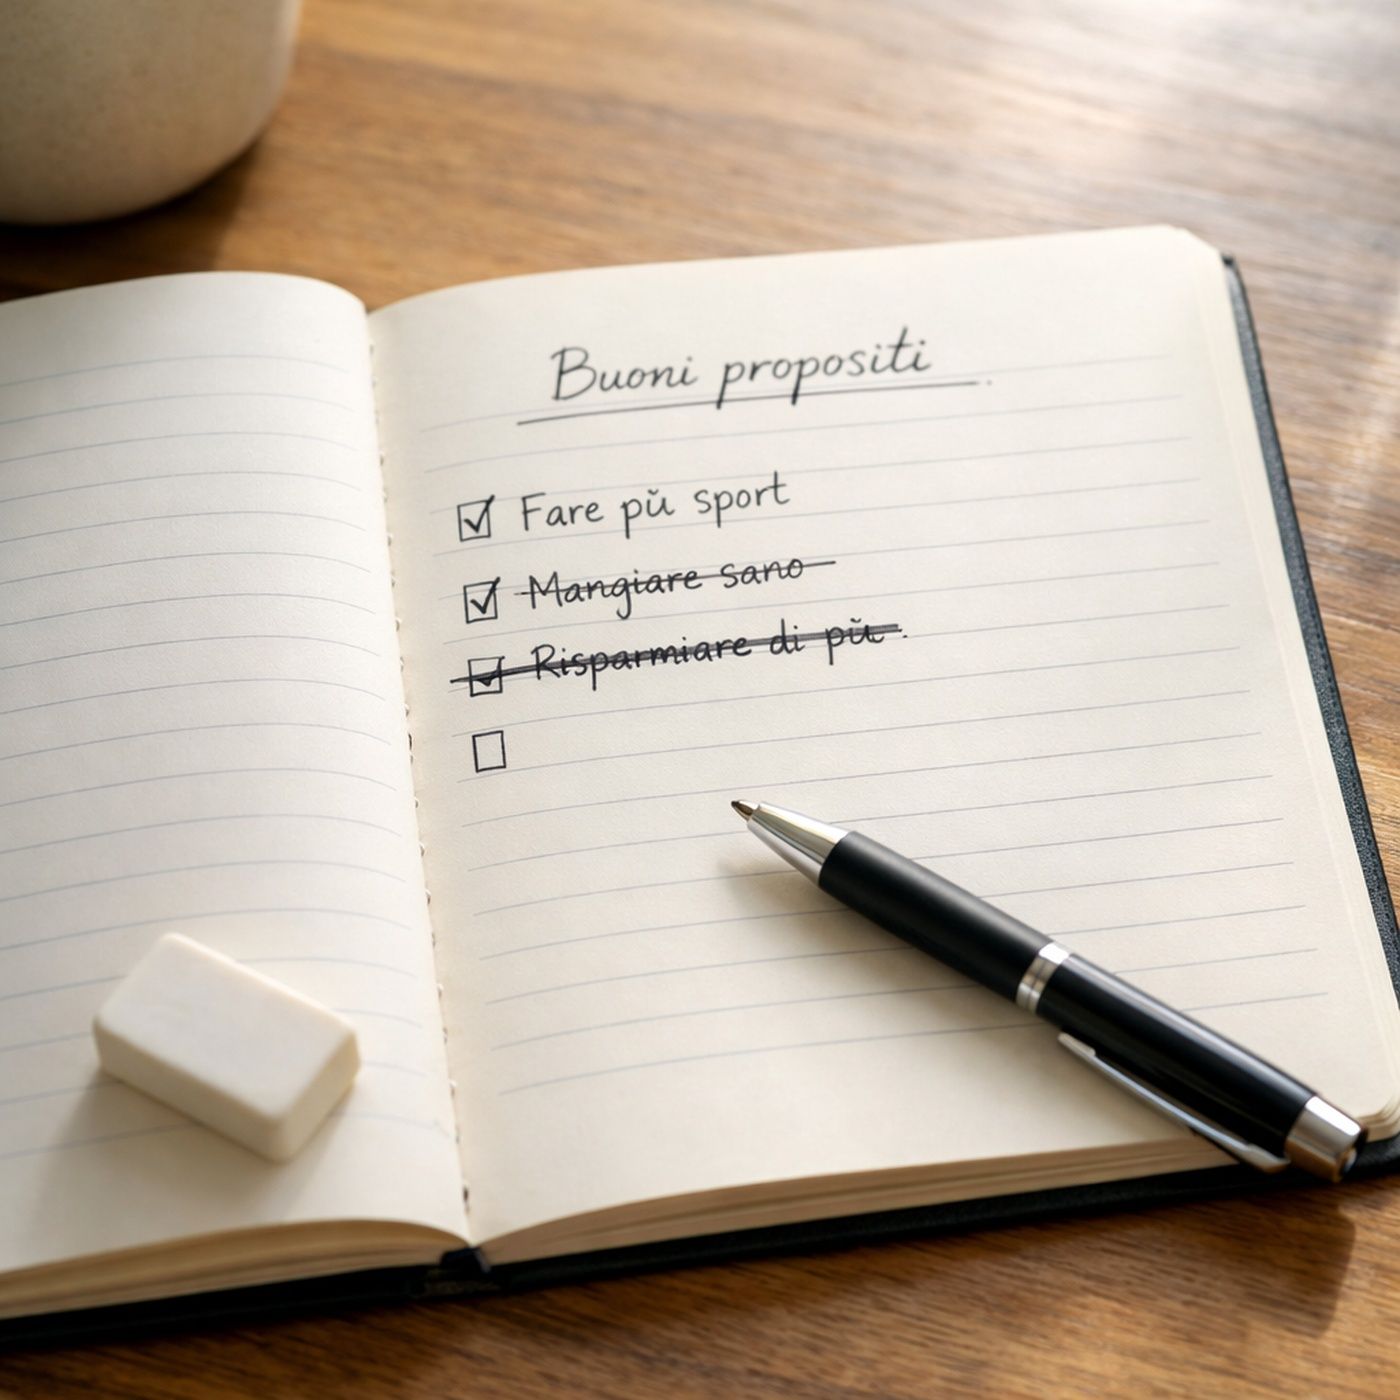 Buoni propositi
Fare pǔ sport
Mangiare sano
Risparmiare di pǔ.